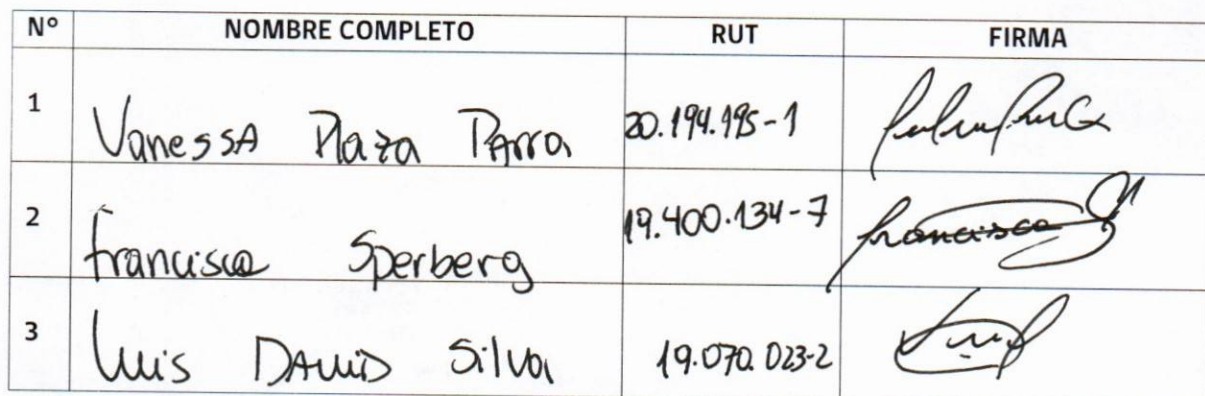 N° NOMBRE COMPLETO RUT FIRMA
1 Vanessa Plaza Parra 20.194.195-1
2 Francisca Sperberg 19.400.134-7 francisca
3 Luis DAviD Silva 19.070.023-2